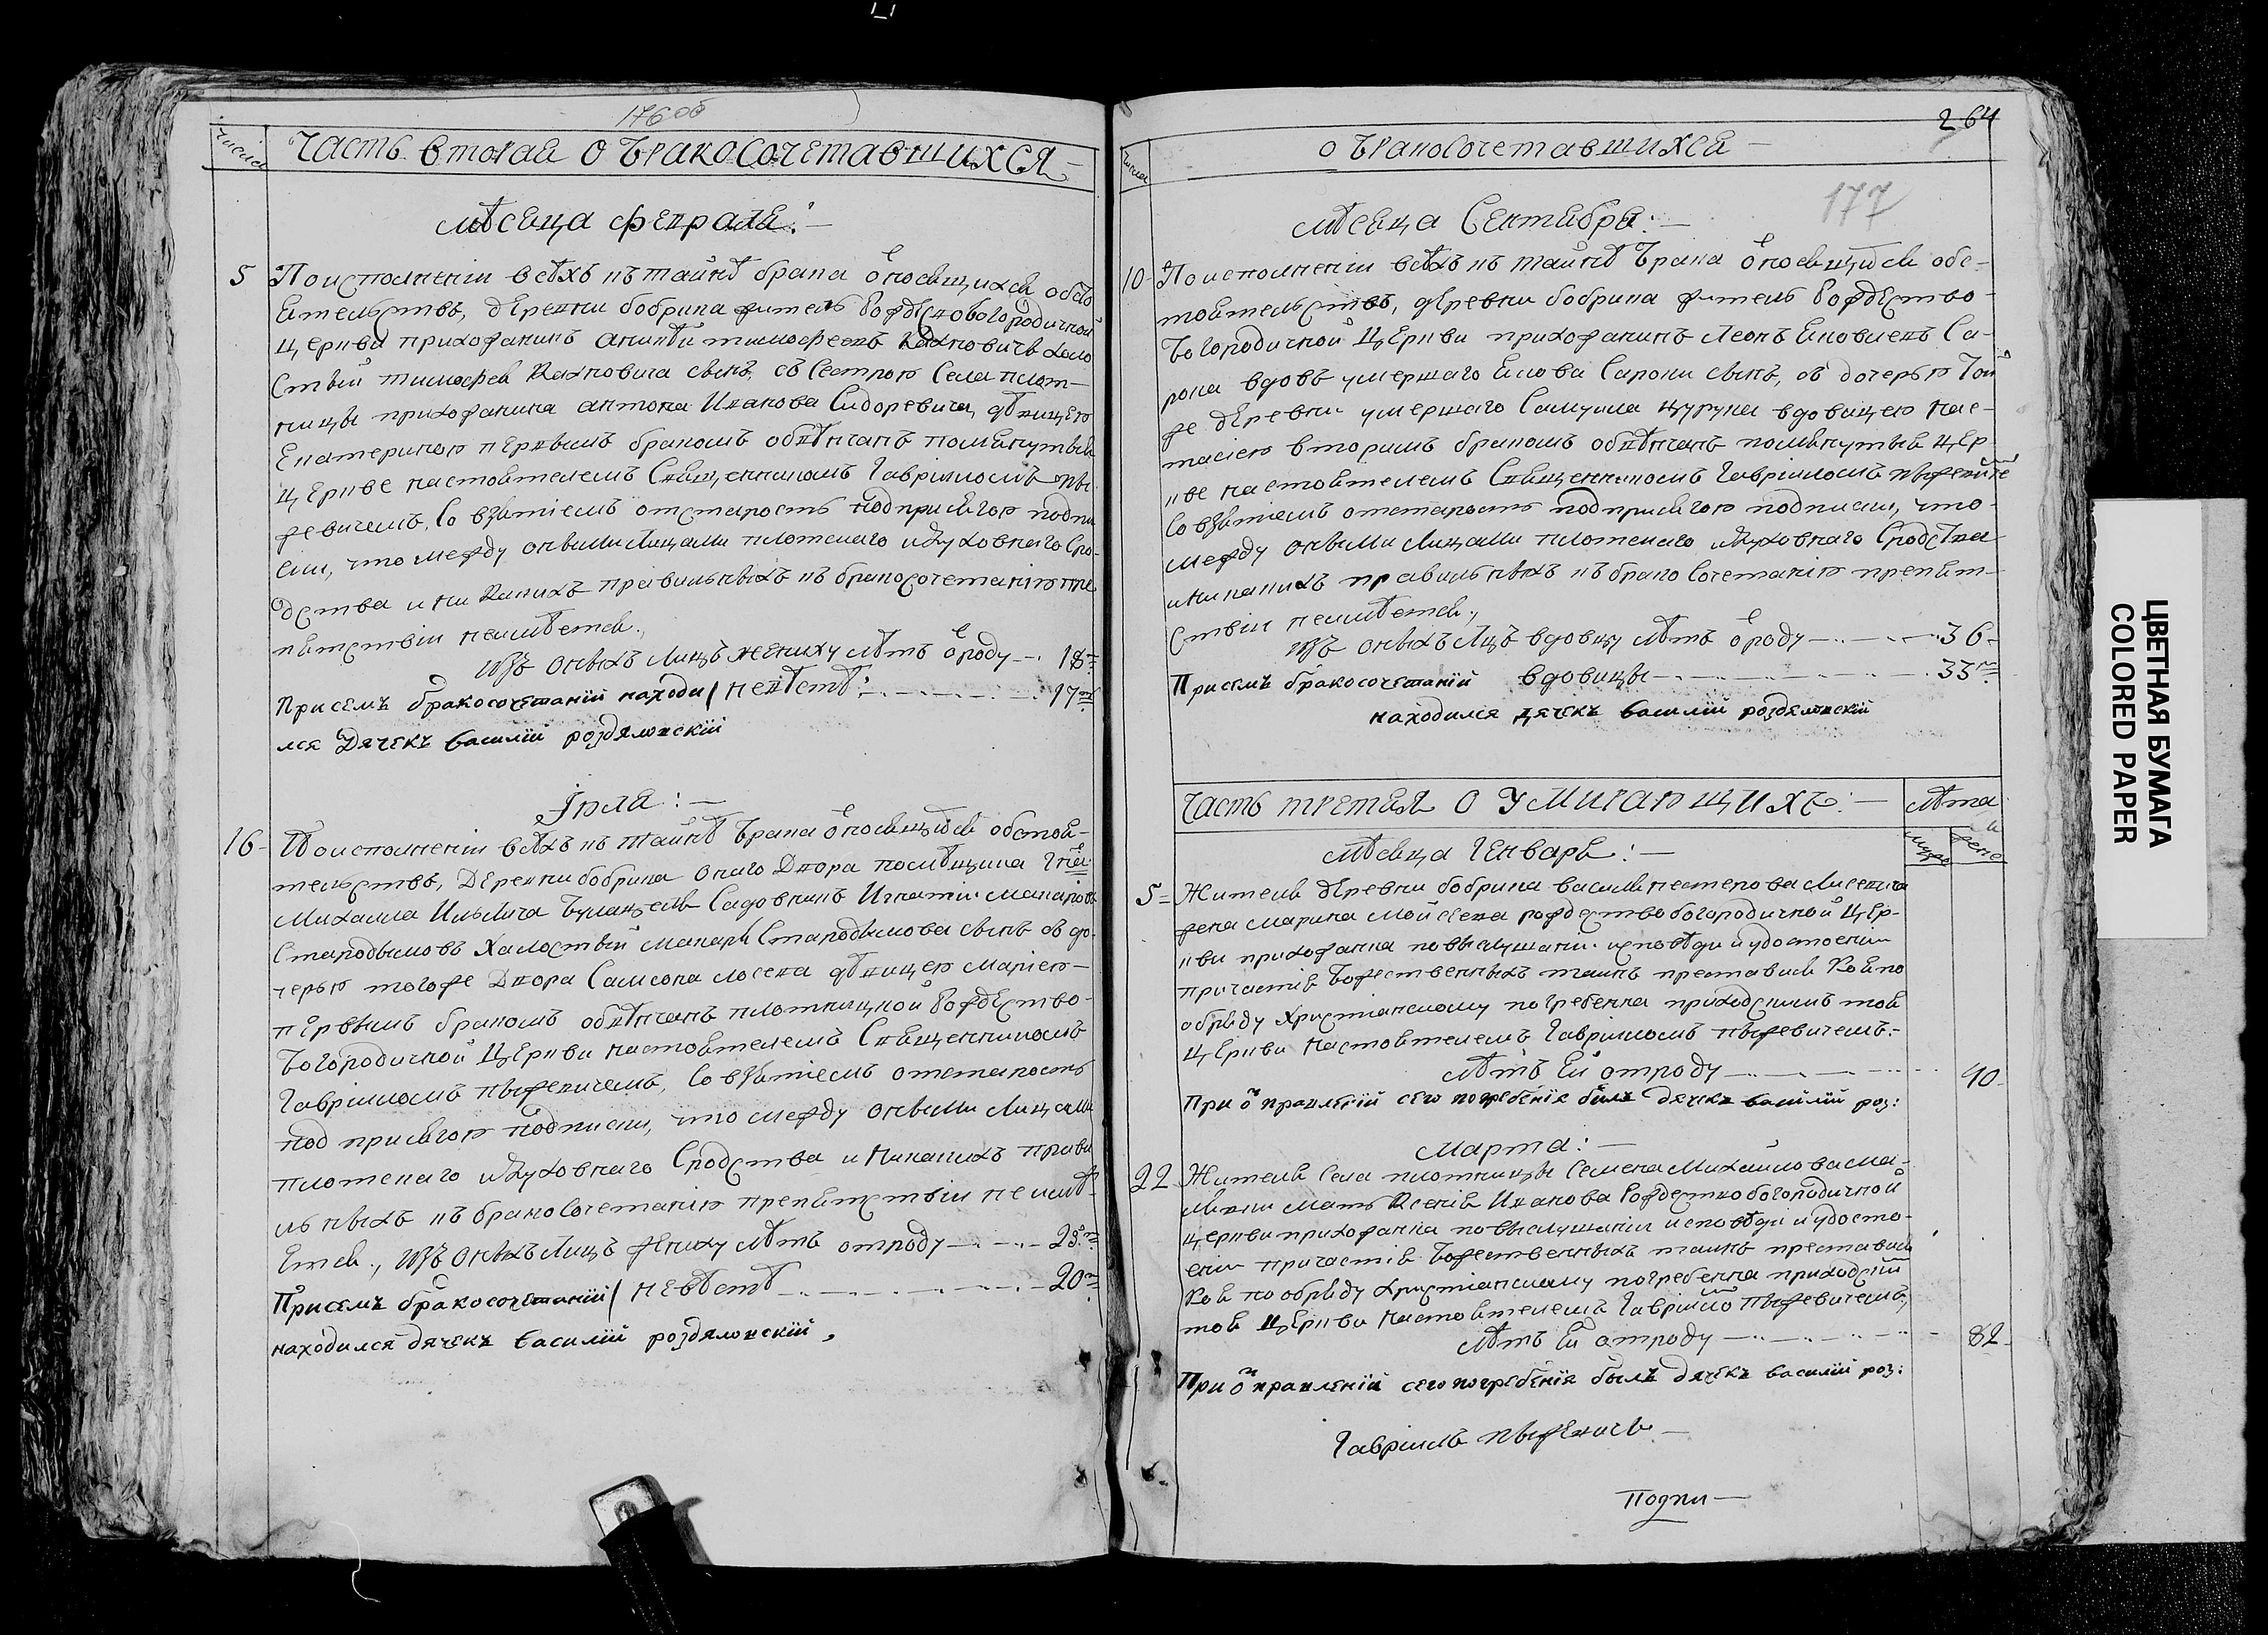 176 об
числа
Часть вторая о бракосочетавшихся
мѣсяца февраля:
5 По исполненіи всѣхъ къ тайнѣ брака относящихся обсто
ятельствъ, деревни бобрика житель Рождественобогородичной
церкви прихожанинъ Тимофеевъ холо
стый Тимофея сынъ, съ сестрою села плот-
ницы прихожанина Антона Иванова Сидоревича, дѣвицею
Екатериною первымъ бракомъ обвѣнчанъ помянутыя
церкве настоятелемъ священникомъ Гавріиломъ пы-
жевичемъ, со взятіемъ отстаростъ подприсягою подпи
ски, что между оными лицами плотскаго и духовнаго сро-
дства и ни какихъ правильныхъ къ бракосочетанію пре
пятствіи неимѣется.
изъ оныхъ лицъ жениху лѣтъ отроду 18
невѣстѣ 17
При семъ бракосочетаній находи
лся Дячекъ василій роздяловскій
Іюля:
16 По исполненіи всѣхъ къ тайнѣ брака относящихся обстоя-
тельствъ, деревни бобрика онаго двора помѣщика
Михаила Ильича садовникъ Игнатій Макаровъ
Стародымовъ холостый Макаря Стародымова сынъ съ до-
черью тогоже двора Самсона лосека дѣвицею Маріею
первымъ бракомъ обвѣнчанъ плотницкой Рождество-
богородичной церкви настоятелемъ священникомъ
Гавріиломъ пыжевичемъ, со взятіемъ отстаростъ
под присягою подписки, что между оными лицами
плотскаго и духовнаго сродства и никакихъ прави
льныхъ къ бракосочетанію препятствіи неимѣ-
ется., изъ оныхъ лицъ жениху лѣтъ отроду 25
невѣстѣ 20
При семъ бракосочетаній
находился дячекъ василій роздяловскій,
264
числа
о бракосочетавшихся
177
мѣсяца Сентября:
10 По исполненіи всѣхъ къ тайнѣ брака относящихся обс-
тоятельствъ, деревни бобрика житель Рождество-
богородичной церкви прихожанинъ Леонъ Яковлевъ Са-
рока вдовъ умершаго Якова Сароки сынъ, съ дочерью той
же деревни умершаго Самуила цурука вдовицею Нас-
тасіею вторимъ бракомъ обвѣнчанъ помянутыя цер
кве настоятелемъ священникомъ Гавріиломъ
со взятіемъ отстаростъ подприсягою подписки, что
между оными лицами плотскаго и духовнаго сродства
и никакихъ правильныхъ къ бракосочетанію препят-
ствіи неимѣется.,
изъ оныхъ лицъ вдовцу лѣтъ отроду 36
вдовицы 33
При семъ бракосочетаній
находился дячекъ василій роздяловскій
Часть третая о умирающихъ:
лѣта
муже
жене
мѣсяца Генваря:
5 Жителя деревни бобрика василя
жена марина мойсеева рождествобогородичной цер-
кви прихожанка повыслушаніи исповѣди и удостоеніи
причастія божественныхъ таинъ преставися коя по
обряду христіанскому погребенна приходскимъ тоя
церкви настоятелемъ Гавріиломъ пыжевичемъ.
лѣтъ Ей отроду 40
При отправленій сего погребенія былъ дячекъ василій роз:
марта:
22 Жителя села плотницы Семена Михайлова
мать Ксенія Иванова Рождествобогородичной
церкви прихожанка повыслушаніи исповѣди и удосто-
еніи причастія божественныхъ таинъ преставися
коя по обряду христіанскому погребенна приходскій
тоя церкви настоятелемъ Гавріило пыжевичемъ,
лѣтъ Ей отроду 82
При отправленій сего погребенія былъ дячекъ василій роз:
Гавріилъ пыжевичъ
Подпи
ЦВЕТНАЯ БУМАГА
COLORED PAPER